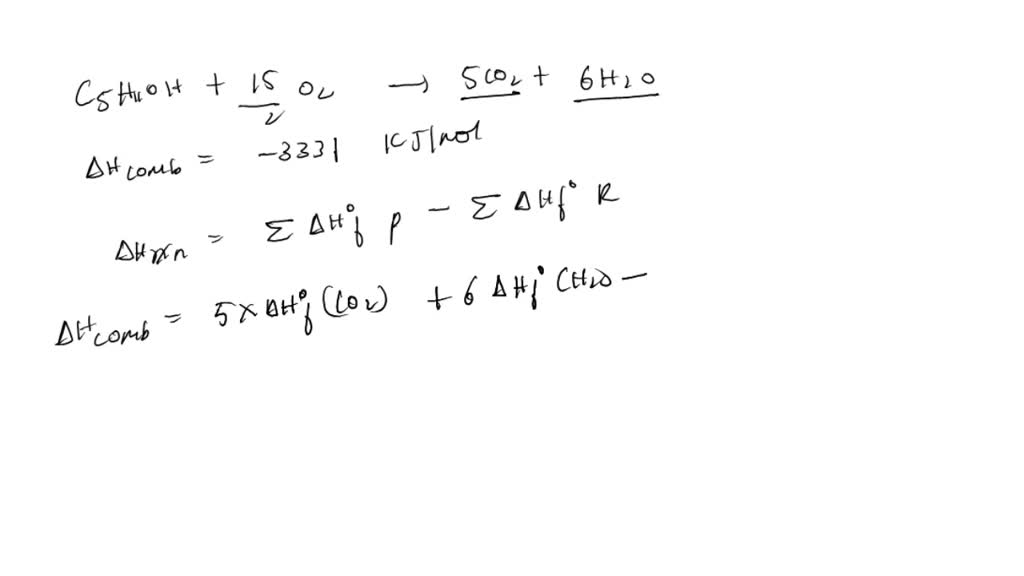 C5H11OH + 15/2 O2 → 5CO2 + 6H2O
ΔHcomb = -3331 KJ/mol
ΔHrxn = Σ ΔH°f P - Σ ΔHf° R
ΔHcomb = 5×ΔH°f (CO2) + 6 ΔHf° (H2O -